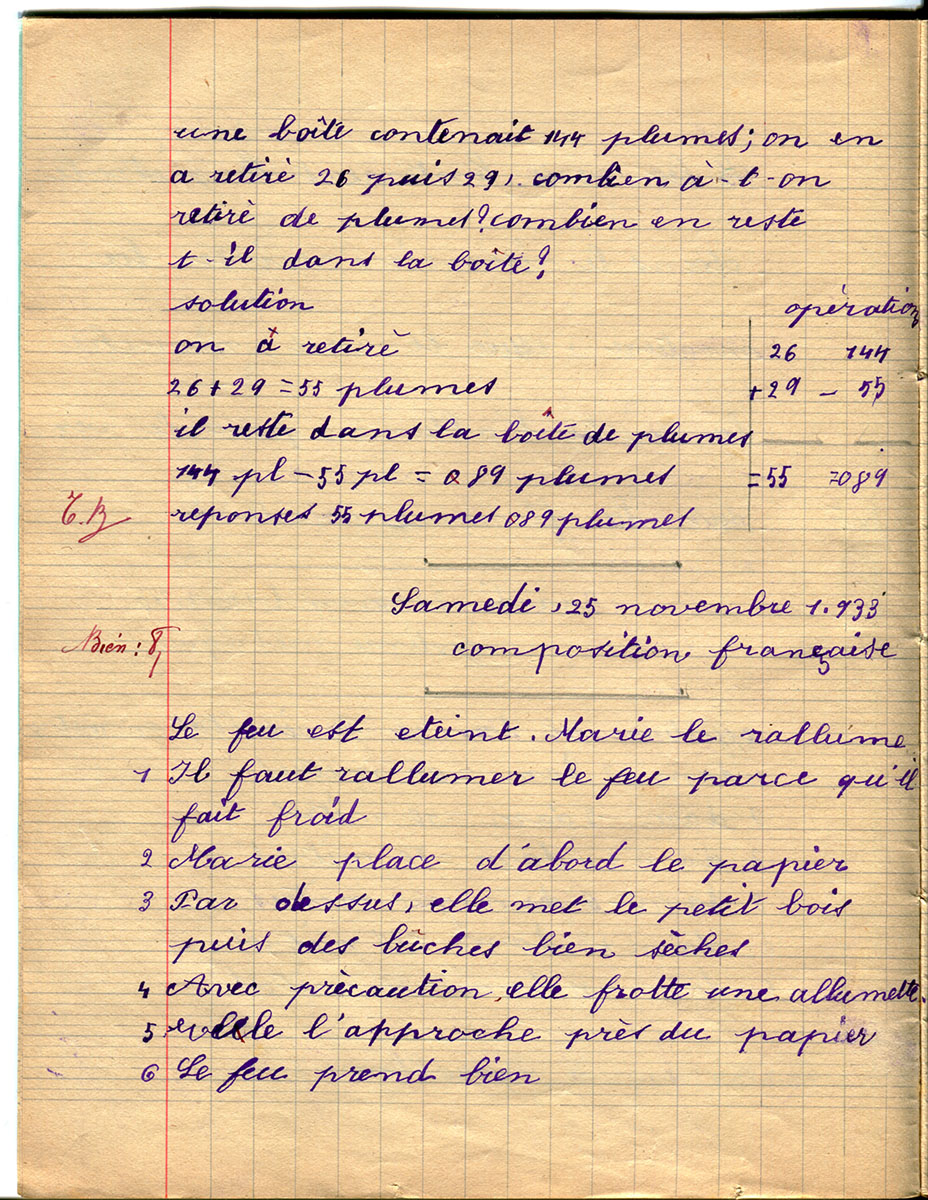 une boîte contenait 144 plumes; on en
a retiré 26 puis 29, combien à-t-on
retiré de plumes? combien en reste
t-il dans la boîte?
solution
opération
on à retiré
26 144
26+29=55 plumes
+29 - 55
il reste dans la boîte de plumes
144 pl-55 pl = 089 plumes
=55 =089
T.B
reponses 55 plumes 089 plumes
Samedi, 25 novembre 1.933
Bien: 8
composition française
Le feu est eteint. Marie le rallume
1 Il faut rallumer le feu parce qu'il
fait froid
2 Marie place d'abord le papier
3 Par dessus, elle met le petit bois
puis des bûches bien sèches
4 Avec précaution, elle frotte une allumette.
5 elle l'approche près du papier
6 Le feu prend bien